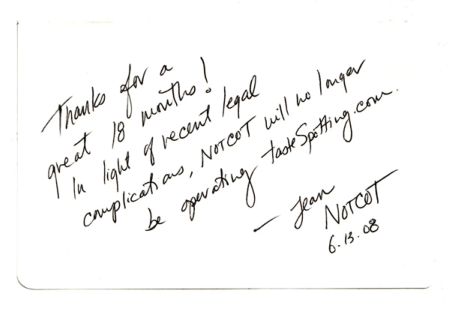 Thanks for a
great 18 months!
In light of recent legal
complications, NOTCOT will no longer
be operating tasteSpotting.com.
— Jean
NOTCOT
6.13.08